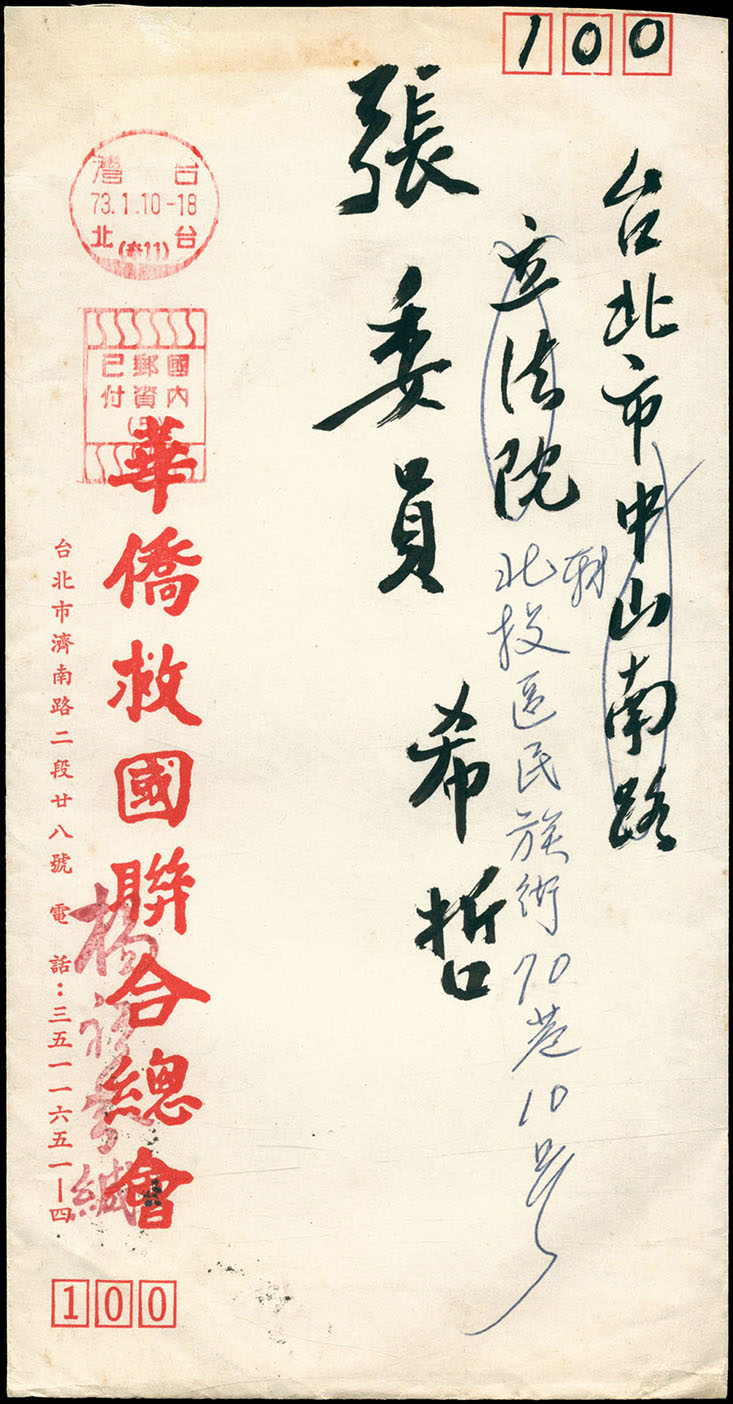 100
台北市中山南路
立法院
轉
北投區民族街70巷10号
張委員希哲
台灣
73.1.10-18
台北
國內
郵資
已付
華僑救國聯合總會
台北市濟南路二段廿八號 電話：三五一一六五一—四
緘
100